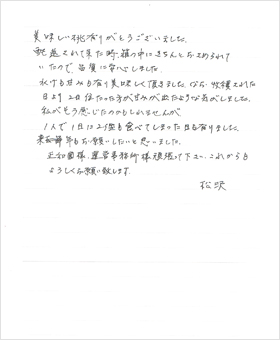 美味しい桃ありがとうございました。
配送されて来た時、箱の中にきちんとおさめられて
いたので品質に安心しました。
水けも甘みもあり美味しく頂きました。ただ、収穫された
日より2日位たった方が甘みが出たような気がしました。
私がそう感じたのかもしれませんが。
1人で1日に2個も食べてしまった日も有りました。
来年もお願いしたいと思いました。
正和園様、運営事務所様頑張って下さい。これからも
よろしくお願い致します。
松沢